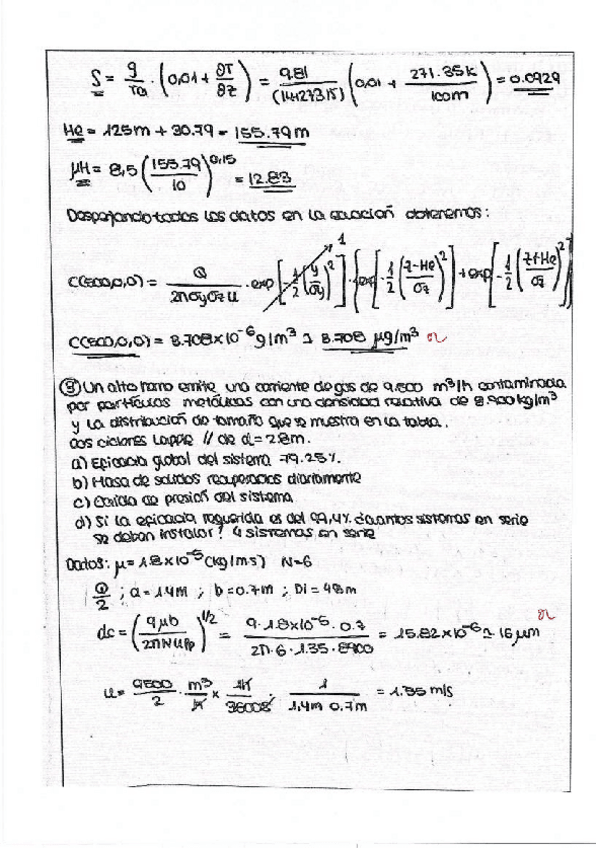 S = g/Ta · (0,01 + ∂T/∂z) = 9.81/(14+273.15) (0,01 + 271.35k/100m) = 0.0929
He = 125m + 30.79 = 155.79m
μH = 8,5 (155.79/10)^0,15 = 12.83
Despejando todos los datos en la ecuación obtenemos:
C(500,0,0) = Q/2πσyσzu · exp[-1/2 (y/σy)²] · {exp[-1/2 (z-He/σz)²] + exp[-1/2 (z+He/σz)²]} 1
C(500,0,0) = 8.708×10⁻⁶ g/m³ ≃ 8.708 μg/m³
⑨ Un alto horno emite una corriente de gas de 9.500 m³/h contaminada
por partículas metálicas con una densidad relativa de 8.900 kg/m³
y la distribución de tamaño que se muestra en la tabla.
dos ciclones Lapple // de d = 2.8m.
a) Eficacia global del sistema 79.25%.
b) Masa de solidos recuperados diariamente
c) Caída de presión del sistema
d) Si la eficacia requerida es del 99,4% ¿cuantos sistemas en serie
se deban instalar? 4 sistemas en serie
Datos: μ = 1.8×10⁻⁵ (kg/ms) N=6
Q/2 ; a = 1.4m ; b = 0.7m ; Di = 48m
dc = (9μb/2πNuρp)^1/2 = 9·1.8×10⁻⁵·0.7/2π·6·1.35·8900 = 15.82×10⁻⁶ ≃ 16 μm
u = 9500/2 · m³/h × 1h/3600s · 1/1,4m 0.7m = 1.35 m/s